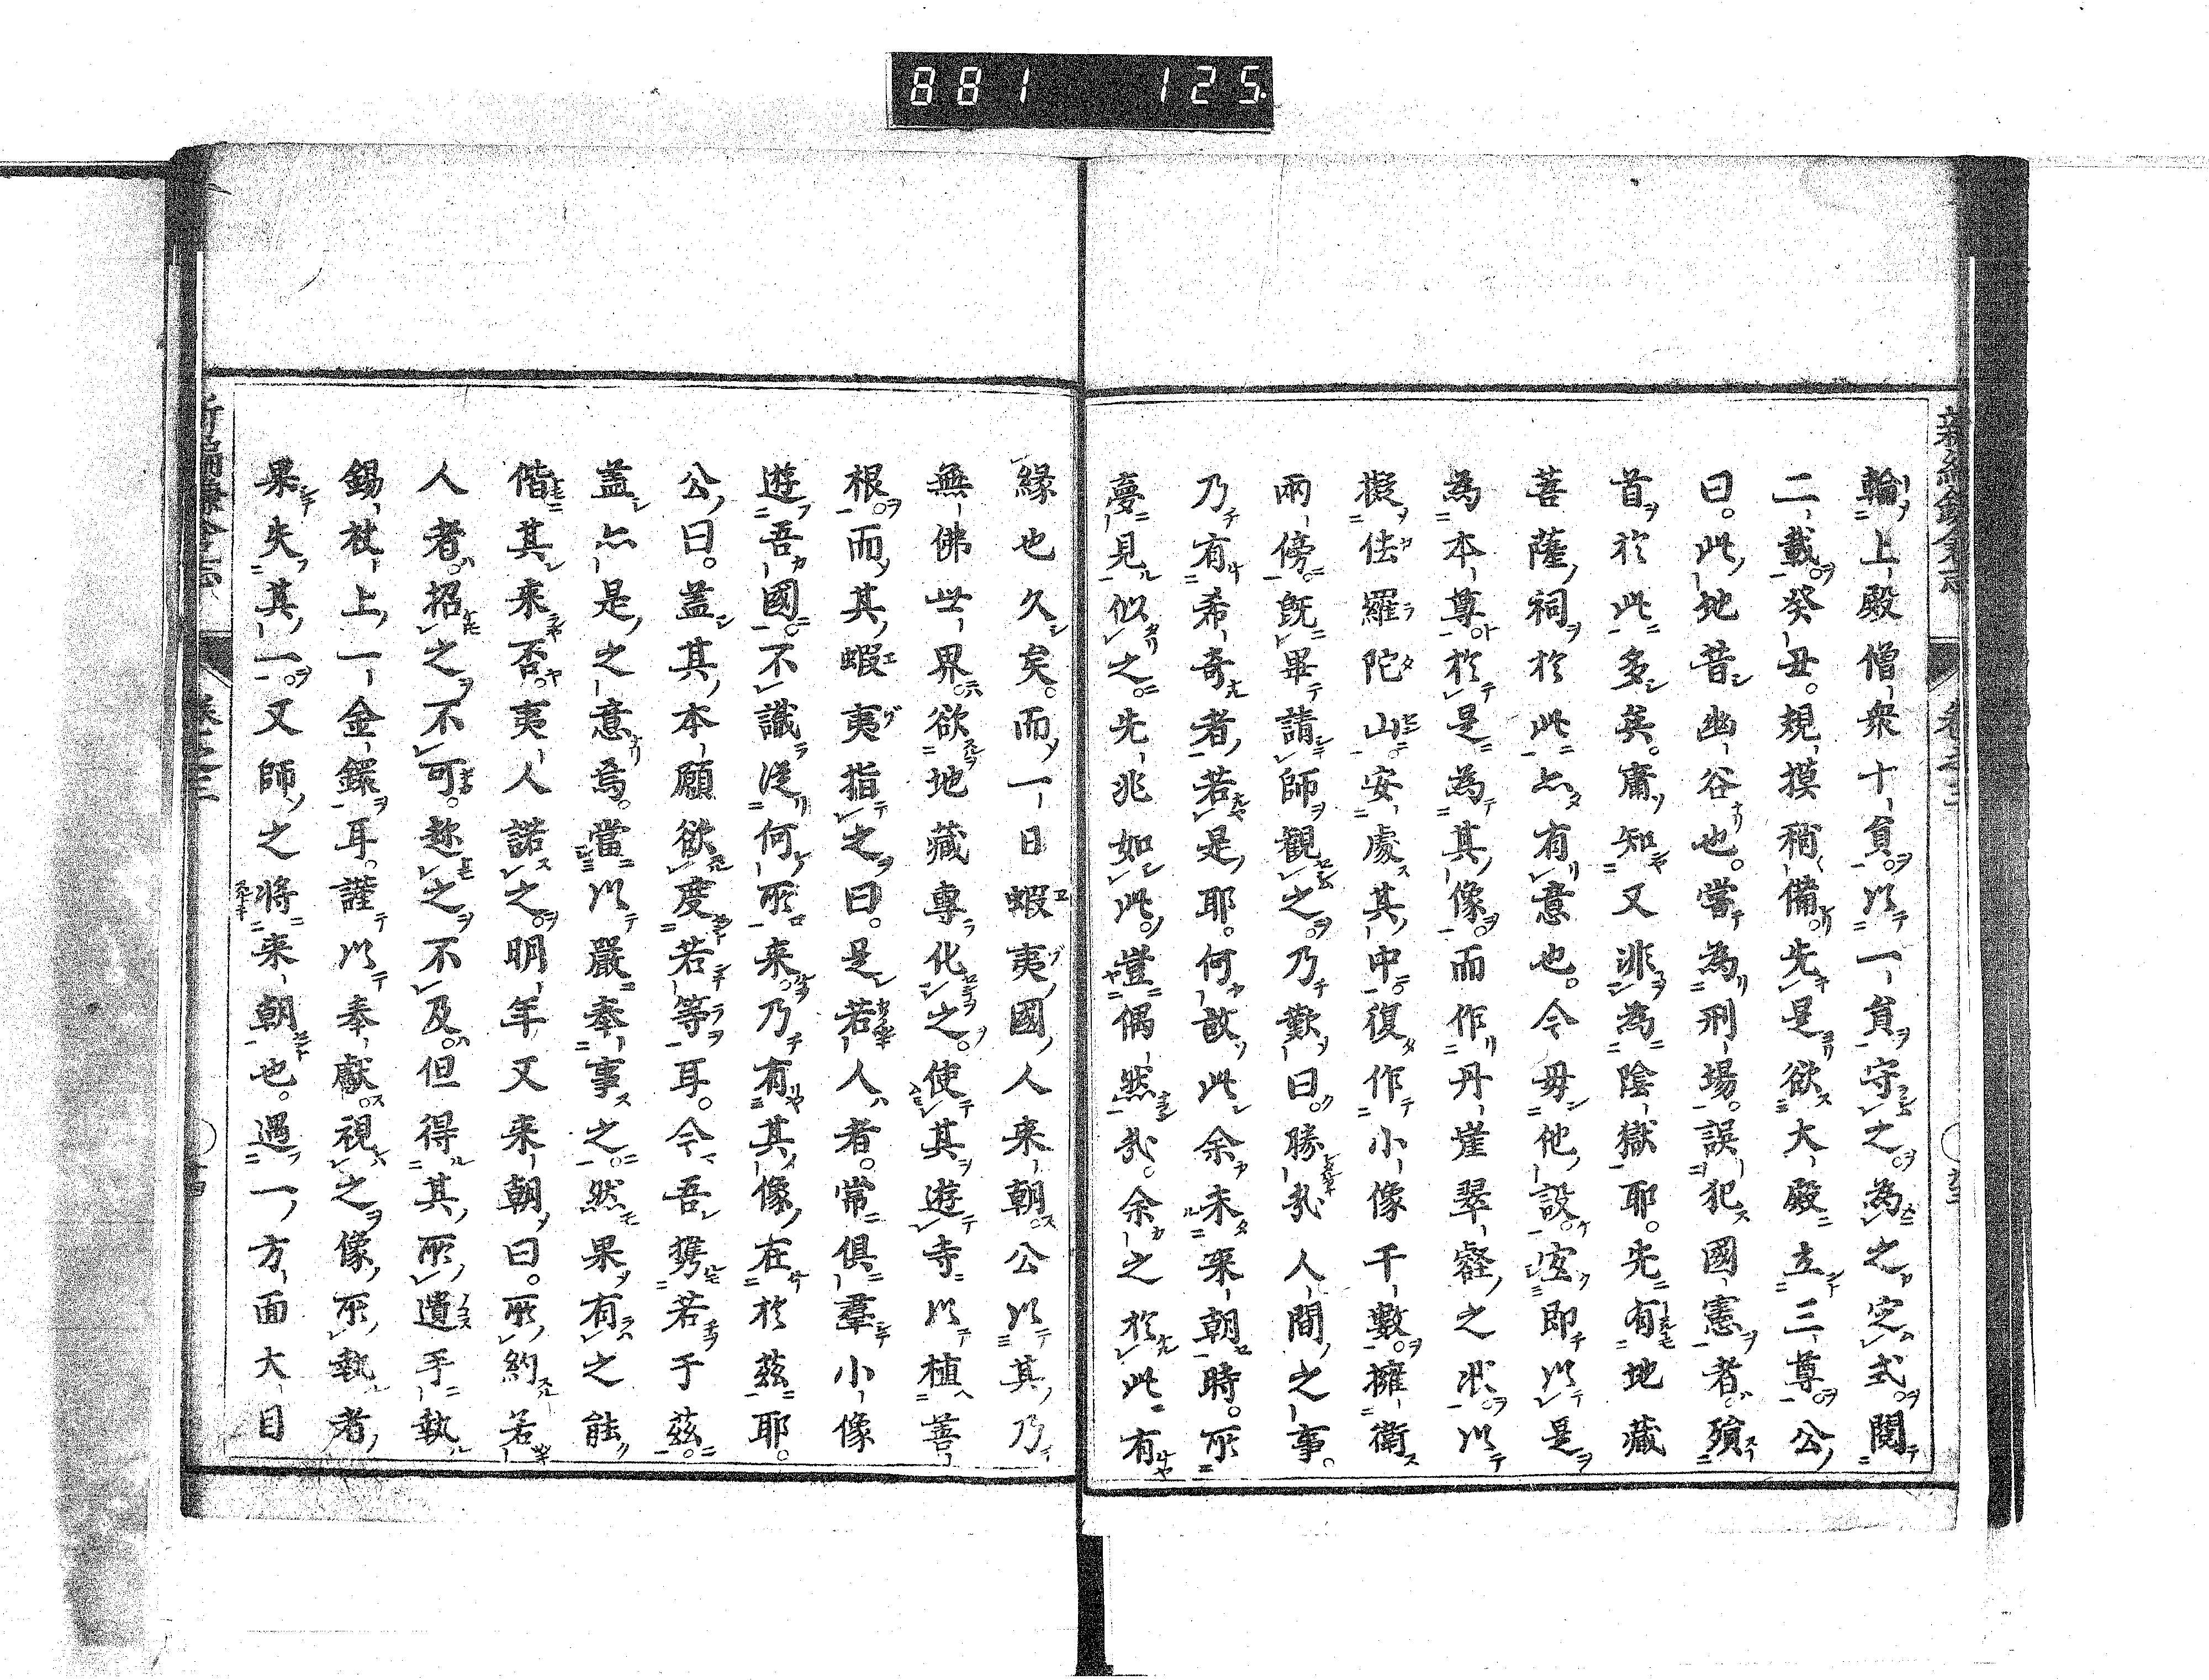 881 125.
輪上殿僧衆十貟以一貟守之為之定式閲
二載癸丑規摸稍備先是欲大殿立三尊公
曰此地昔幽谷也嘗為刑場誤犯國憲者殞
首於此多矣庸知又非為陰獄耶先有地藏
菩薩祠於此亦有意也今毋他設宜即以是
為本尊於是為其像而作丹崖翠壑之状以
擬佉羅陀山安處其中復作小像千數擁衛
兩傍既畢請師觀之乃歎曰勝哉人間之事
乃有希奇者若是耶何故此余未来朝時所
夢見似之先兆如此豈偶然哉余之於此有
縁也久矣而一日蝦夷國人来朝公以其乃
無佛世界欲地藏專化之使其遊寺以植善
根而其蝦夷指之曰是若人者常俱羣小像
遊吾國不識従何所来乃有其像在於茲耶
公曰蓋其本願欲度若等耳今吾㩗若于茲
蓋亦是之意焉當以嚴奉事之然果有之能
偕其来否夷人諾之明年又来朝曰所約若
人者招之不可趂之不及但得其所遺手執
錫杖上一金鐶耳謹以奉獻視之像所執者
果失其一又師之將来朝也遇一方面大目
卷之三